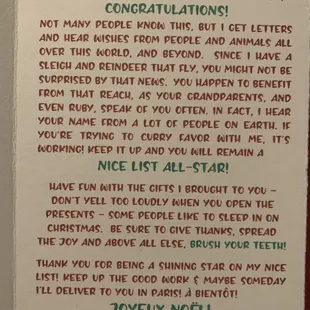 CONGRATULATIONS!
NOT MANY PEOPLE KNOW THIS, BUT I GET LETTERS
AND HEAR WISHES FROM PEOPLE AND ANIMALS ALL
OVER THIS WORLD, AND BEYOND. SINCE I HAVE A
SLEIGH AND REINDEER THAT FLY, YOU MIGHT NOT BE
SURPRISED BY THAT NEWS. YOU HAPPEN TO BENEFIT
FROM THAT REACH, AS YOUR GRANDPARENTS, AND
EVEN RUBY, SPEAK OF YOU OFTEN. IN FACT, I HEAR
YOUR NAME FROM A LOT OF PEOPLE ON EARTH. IF
YOU'RE TRYING TO CURRY FAVOR WITH ME, IT'S
WORKING! KEEP IT UP AND YOU WILL REMAIN A
NICE LIST ALL-STAR!
HAVE FUN WITH THE GIFTS I BROUGHT TO YOU –
DON'T YELL TOO LOUDLY WHEN YOU OPEN THE
PRESENTS – SOME PEOPLE LIKE TO SLEEP IN ON
CHRISTMAS. BE SURE TO GIVE THANKS, SPREAD
THE JOY AND ABOVE ALL ELSE, BRUSH YOUR TEETH!
THANK YOU FOR BEING A SHINING STAR ON MY NICE
LIST! KEEP UP THE GOOD WORK & MAYBE SOMEDAY
I'LL DELIVER TO YOU IN PARIS! À BIENTÔT!
JOYEUX NOËL!